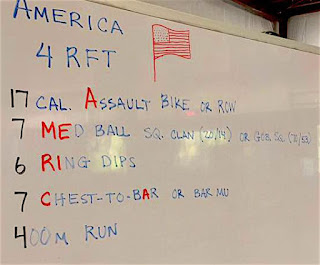 AMERICA
4 RFT
17 CAL. ASSAULT BIKE OR ROW
7 MED BALL SQ. CLAN (20/14) OR GOB. SQ (70/53)
6 RING DIPS
7 CHEST-TO-BAR OR BAR MU
400M RUN